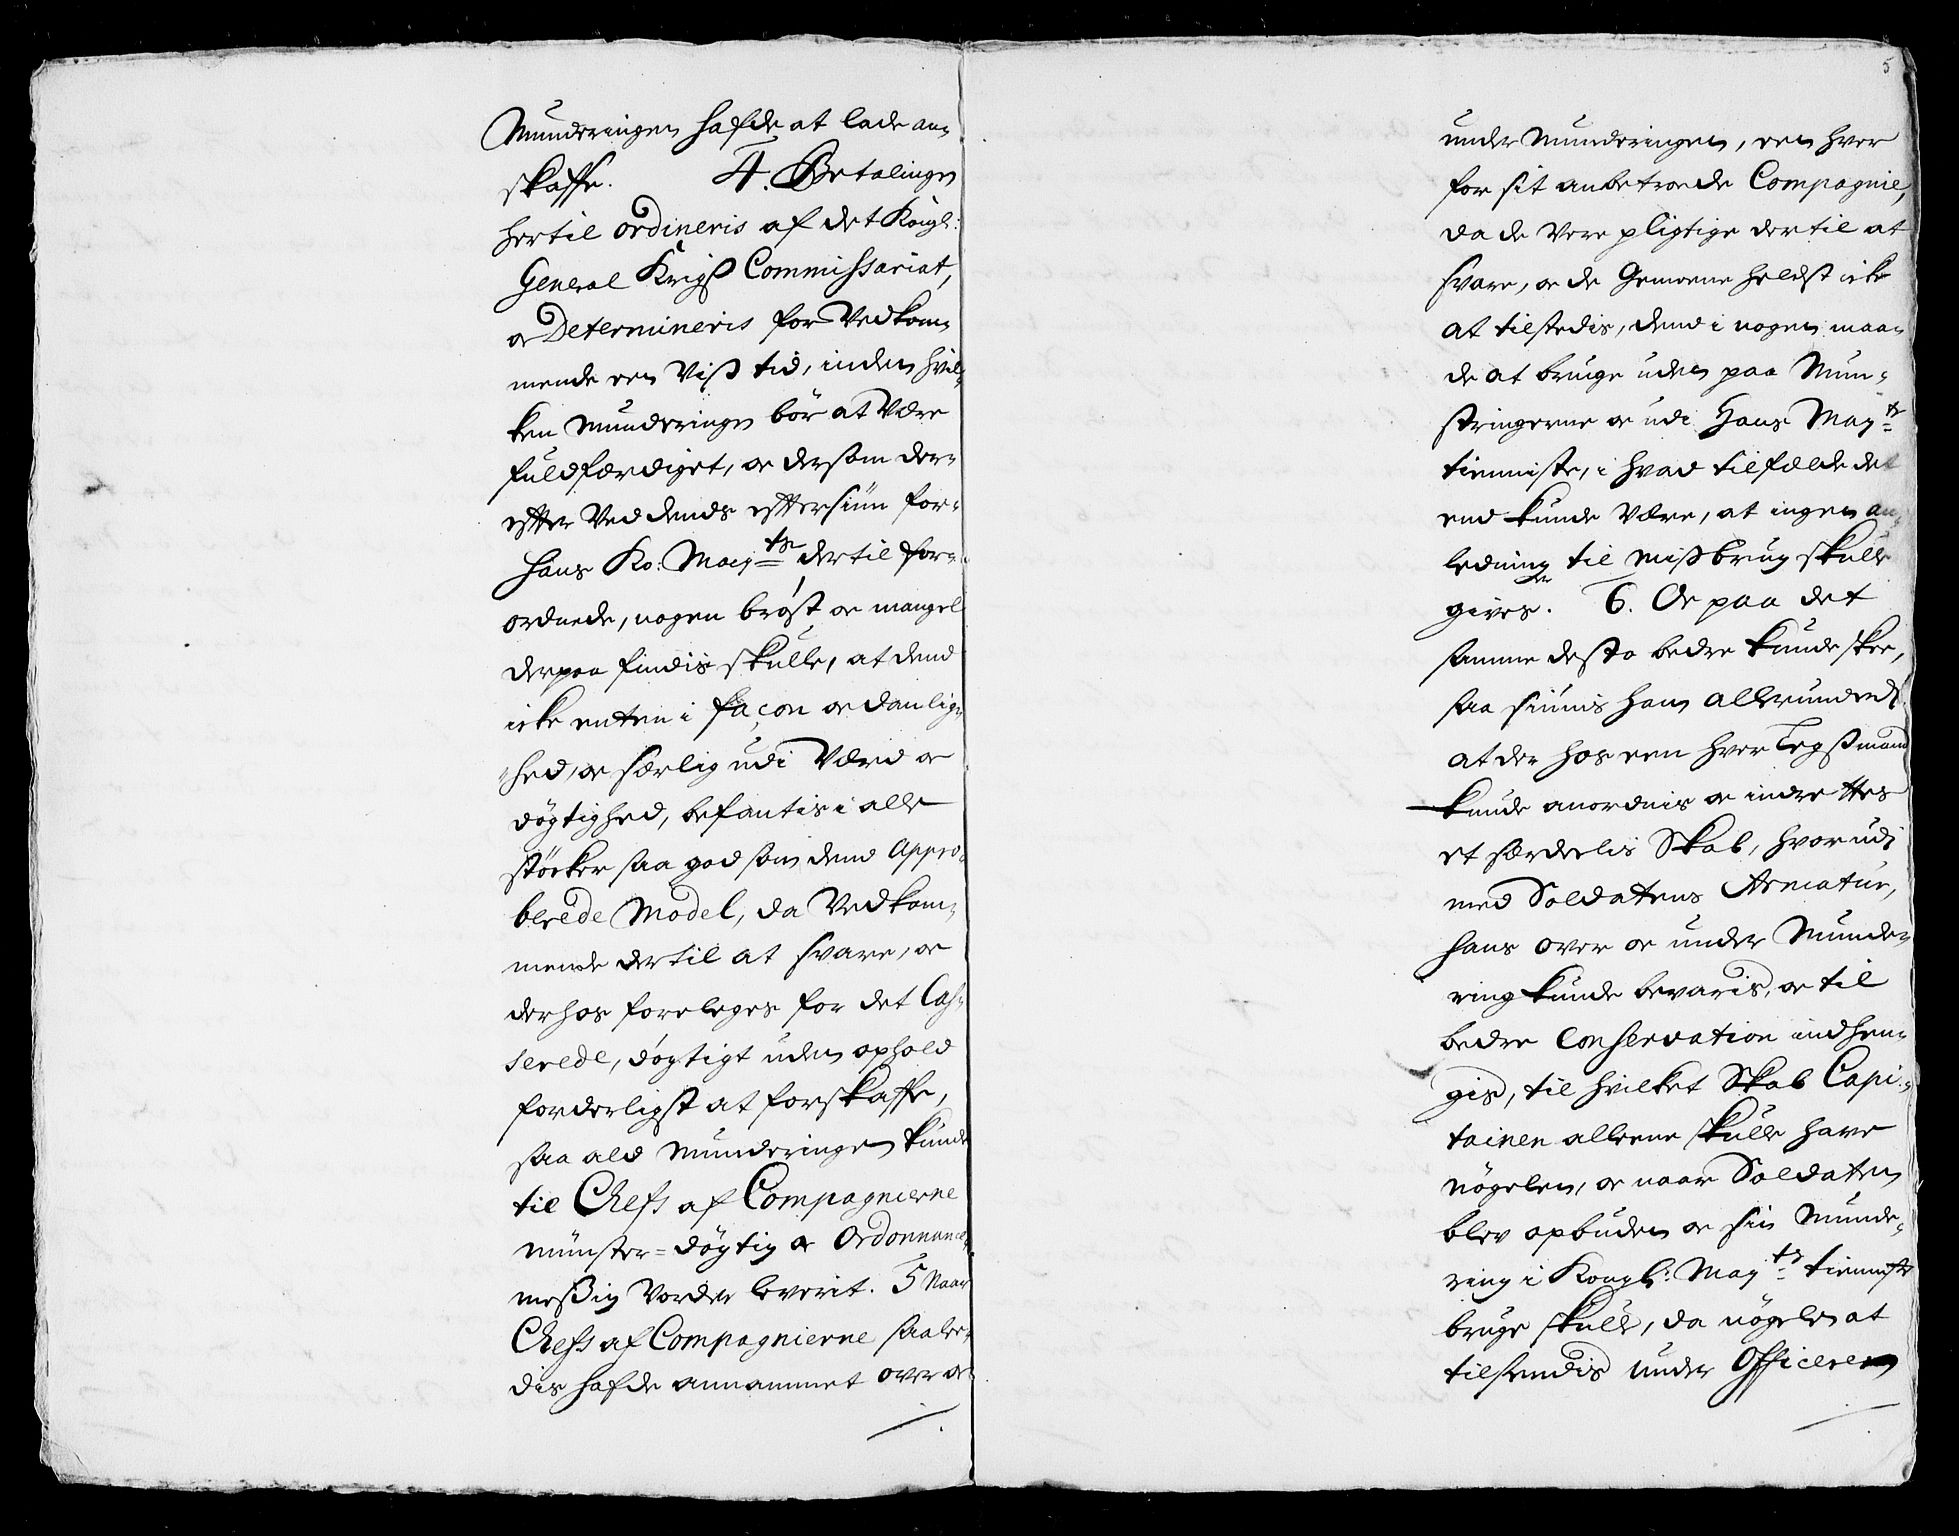 Munderingen hafde at lade an-
skaffe. 4. Betalingen
hertil ordineris af det Kongl:
General Krigß Commissariat,
oc Determineris for Vedkom-
mende een Viß tid, inden hvil-
ken Munderingen bör at Være
fuldfærdiget, oc dersom der-
efter Ved dends eftersiün for-
Hans Ko: May:ts dertil for-
ordnede, nogen bröst oc mangel
derpaa findis skulle, at dend
icke enten i façon oc danlig-
hed, oc særlig udi Værd oc
dögtighed, befantis i alle
störker saa god som dend Appro-
berede Model, da Vedkom-
mende dertil at svare, oc
derhos foreleges for det Cas-
serede, dögtigt uden ophold
forderligst at forskaffe,
saa ald Munderingen kunde
til Chefs af Compagnierne
münster=dögtig oc Ordonnance-
meßig Vorder leverit. 5 Naar
Chefs af Compagnierne saale-
dis hafde annammet over oc
5
under Munderingen, een hver
for sit anbetroede Compagnie,
da de Vere pligtige dertil at
svare, oc de Gemeene heldst icke
at tilstedis, dend i nogen maa-
de at bruge uden paa Mün-
stringerne oc udi Hans May:ts
tienniste, i hvad tilfælde det
end kunde Være, at ingen an-
ledning til mißbrug skulle
gives. 6. Oc paa det
samme desto bedre kunde skee,
saa siunis ham allerunderd:
at der hos een hver Legßmand
kunde anordnis oc indrettes
et særdeelis Skab, hvorudi
med Soldatens Armatur,
hans over oc under Munde-
ring kunde bevaris, oc til
bedre Conservation indhen-
gis, til hvilket Skab Capi-
tainen alleene skulle have
nögelen, oc naar Soldaten
blev opbuden oc sin Munde-
ring i Kongl: May:ts tienniste
bruge skulle, da nögelen at
tilsendis under Officeren